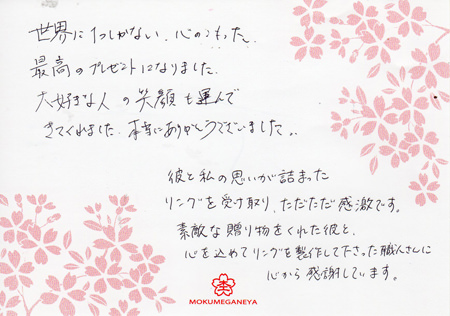 世界に1つしかない、心のこもった、
最高のプレゼントになりました。
大好きな人の笑顔も運んで
きてくれました。本当にありがとうございました。
彼と私の思いが詰まった
リングを受け取り、ただただ感激です。
素敵な贈り物をくれた彼と、
心を込めてリングを製作して下さった職人さんに
心から感謝しています。
MOKUMEGANEYA